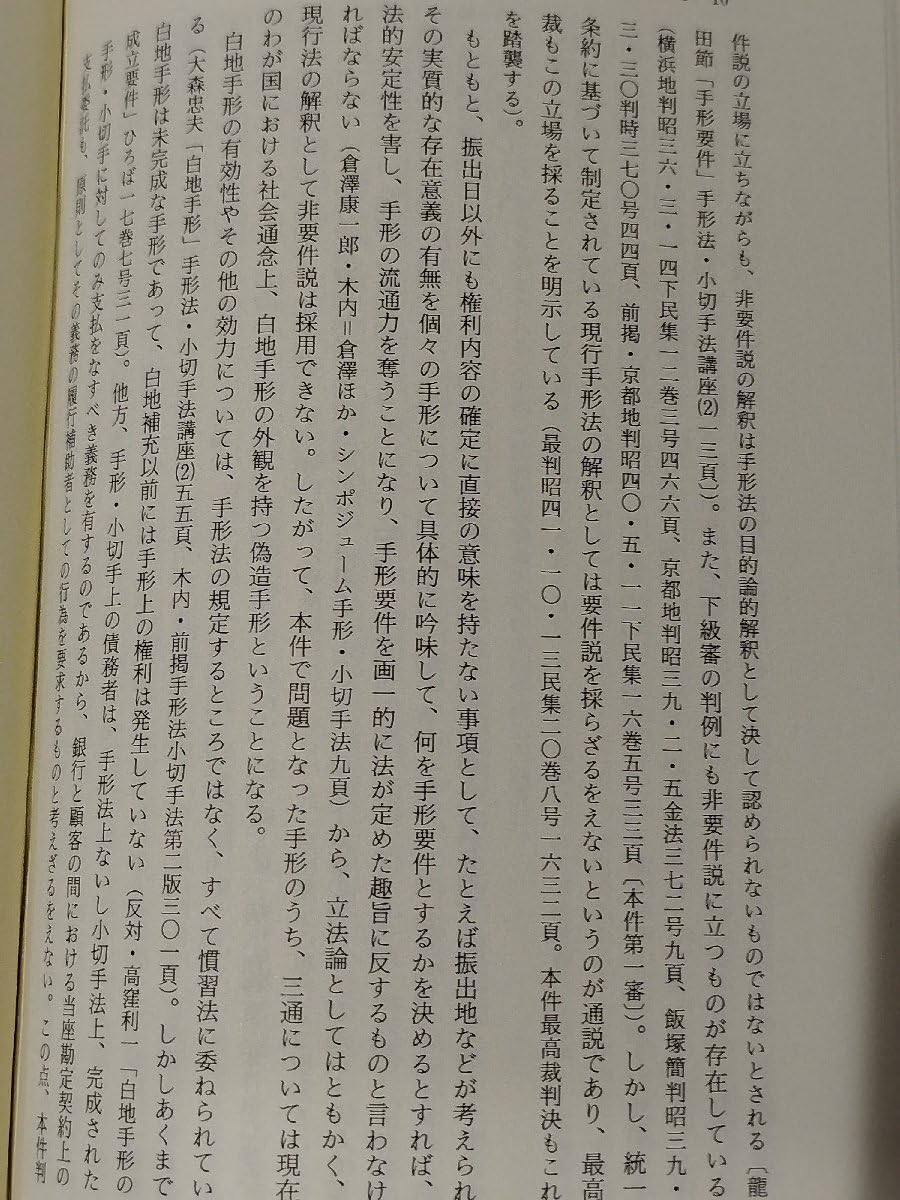 10
件説の立場に立ちながらも、非要件説の解釈は手形法の目的論的解釈として決して認められないものではないとされる〔龍
田節「手形要件」手形法・小切手法講座⑵一三頁〕)。また、下級審の判例にも非要件説に立つものが存在している
(横浜地判昭三六・三・一四下民集一二巻三号四六六頁、京都地判昭三九・二・五金法三七二号九頁、飯塚簡判昭三九・
三・三〇判時三七〇号四四頁、前掲・京都地判昭四〇・五・一一下民集一六巻五号三三頁〔本件第一審〕)。しかし、統一
条約に基づいて制定されている現行手形法の解釈としては要件説を採らざるをえないというのが通説であり、最高
裁もこの立場を採ることを明示している(最判昭四一・一〇・一三民集二〇巻八号一六三二頁。本件最高裁判決もこれ
を踏襲する)。
もともと、振出日以外にも権利内容の確定に直接の意味を持たない事項として、たとえば振出地などが考えられ
その実質的な存在意義の有無を個々の手形について具体的に吟味して、何を手形要件とするかを決めるとすれば、
法的安定性を害し、手形の流通力を奪うことになり、手形要件を画一的に法が定めた趣旨に反するものと言わなけ
ればならない(倉澤康一郎・木内=倉澤ほか・シンポジューム手形・小切手法九頁)から、立法論としてはともかく、
現行法の解釈として非要件説は採用できない。したがって、本件で問題となった手形のうち、三通については現在
のわが国における社会通念上、白地手形の外観を持つ偽造手形ということになる。
白地手形の有効性やその他の効力については、手形法の規定するところではなく、すべて慣習法に委ねられてい
る(大森忠夫「白地手形」手形法・小切手法講座⑵五五頁、木内・前掲手形法小切手法第二版三〇一頁)。しかしあくまで
白地手形は未完成な手形であって、白地補充以前には手形上の権利は発生していない(反対・高窪利一「白地手形の
成立要件」ひろば一七巻七号三一頁)。他方、手形・小切手上の債務者は、手形法上ないし小切手法上、完成された
手形・小切手に対してのみ支払をなすべき義務を有するのであるから、銀行と顧客の間における当座勘定契約上の
支払委託も、原則としてその義務の履行補助者としての行為を要求するものと考えざるをえない。この点、本件判